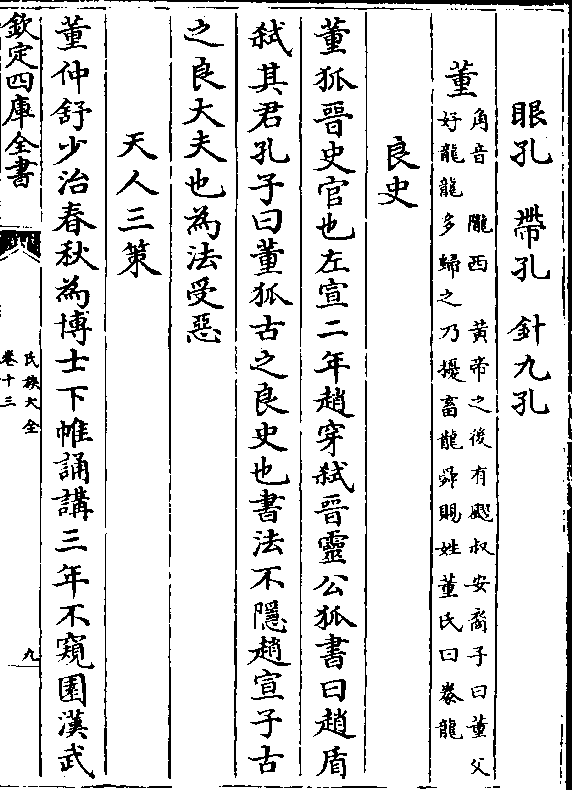 眼孔　帶孔　針九孔
董
角音　隴西　黄帝之後有飂叔安裔子曰董父
好龍龍多歸之乃擾畜龍舜賜姓董氏曰豢龍
良史
董狐晉史官也左宣二年趙穿弑晉靈公狐書曰趙盾
弑其君孔子曰董狐古之良史也書法不隱趙宣子古
之良大夫也為法受惡
天人三策
董仲舒少治春秋為博士下帷誦講三年不窺園漢武
欽定四庫全書
氏族大全
卷十三
九